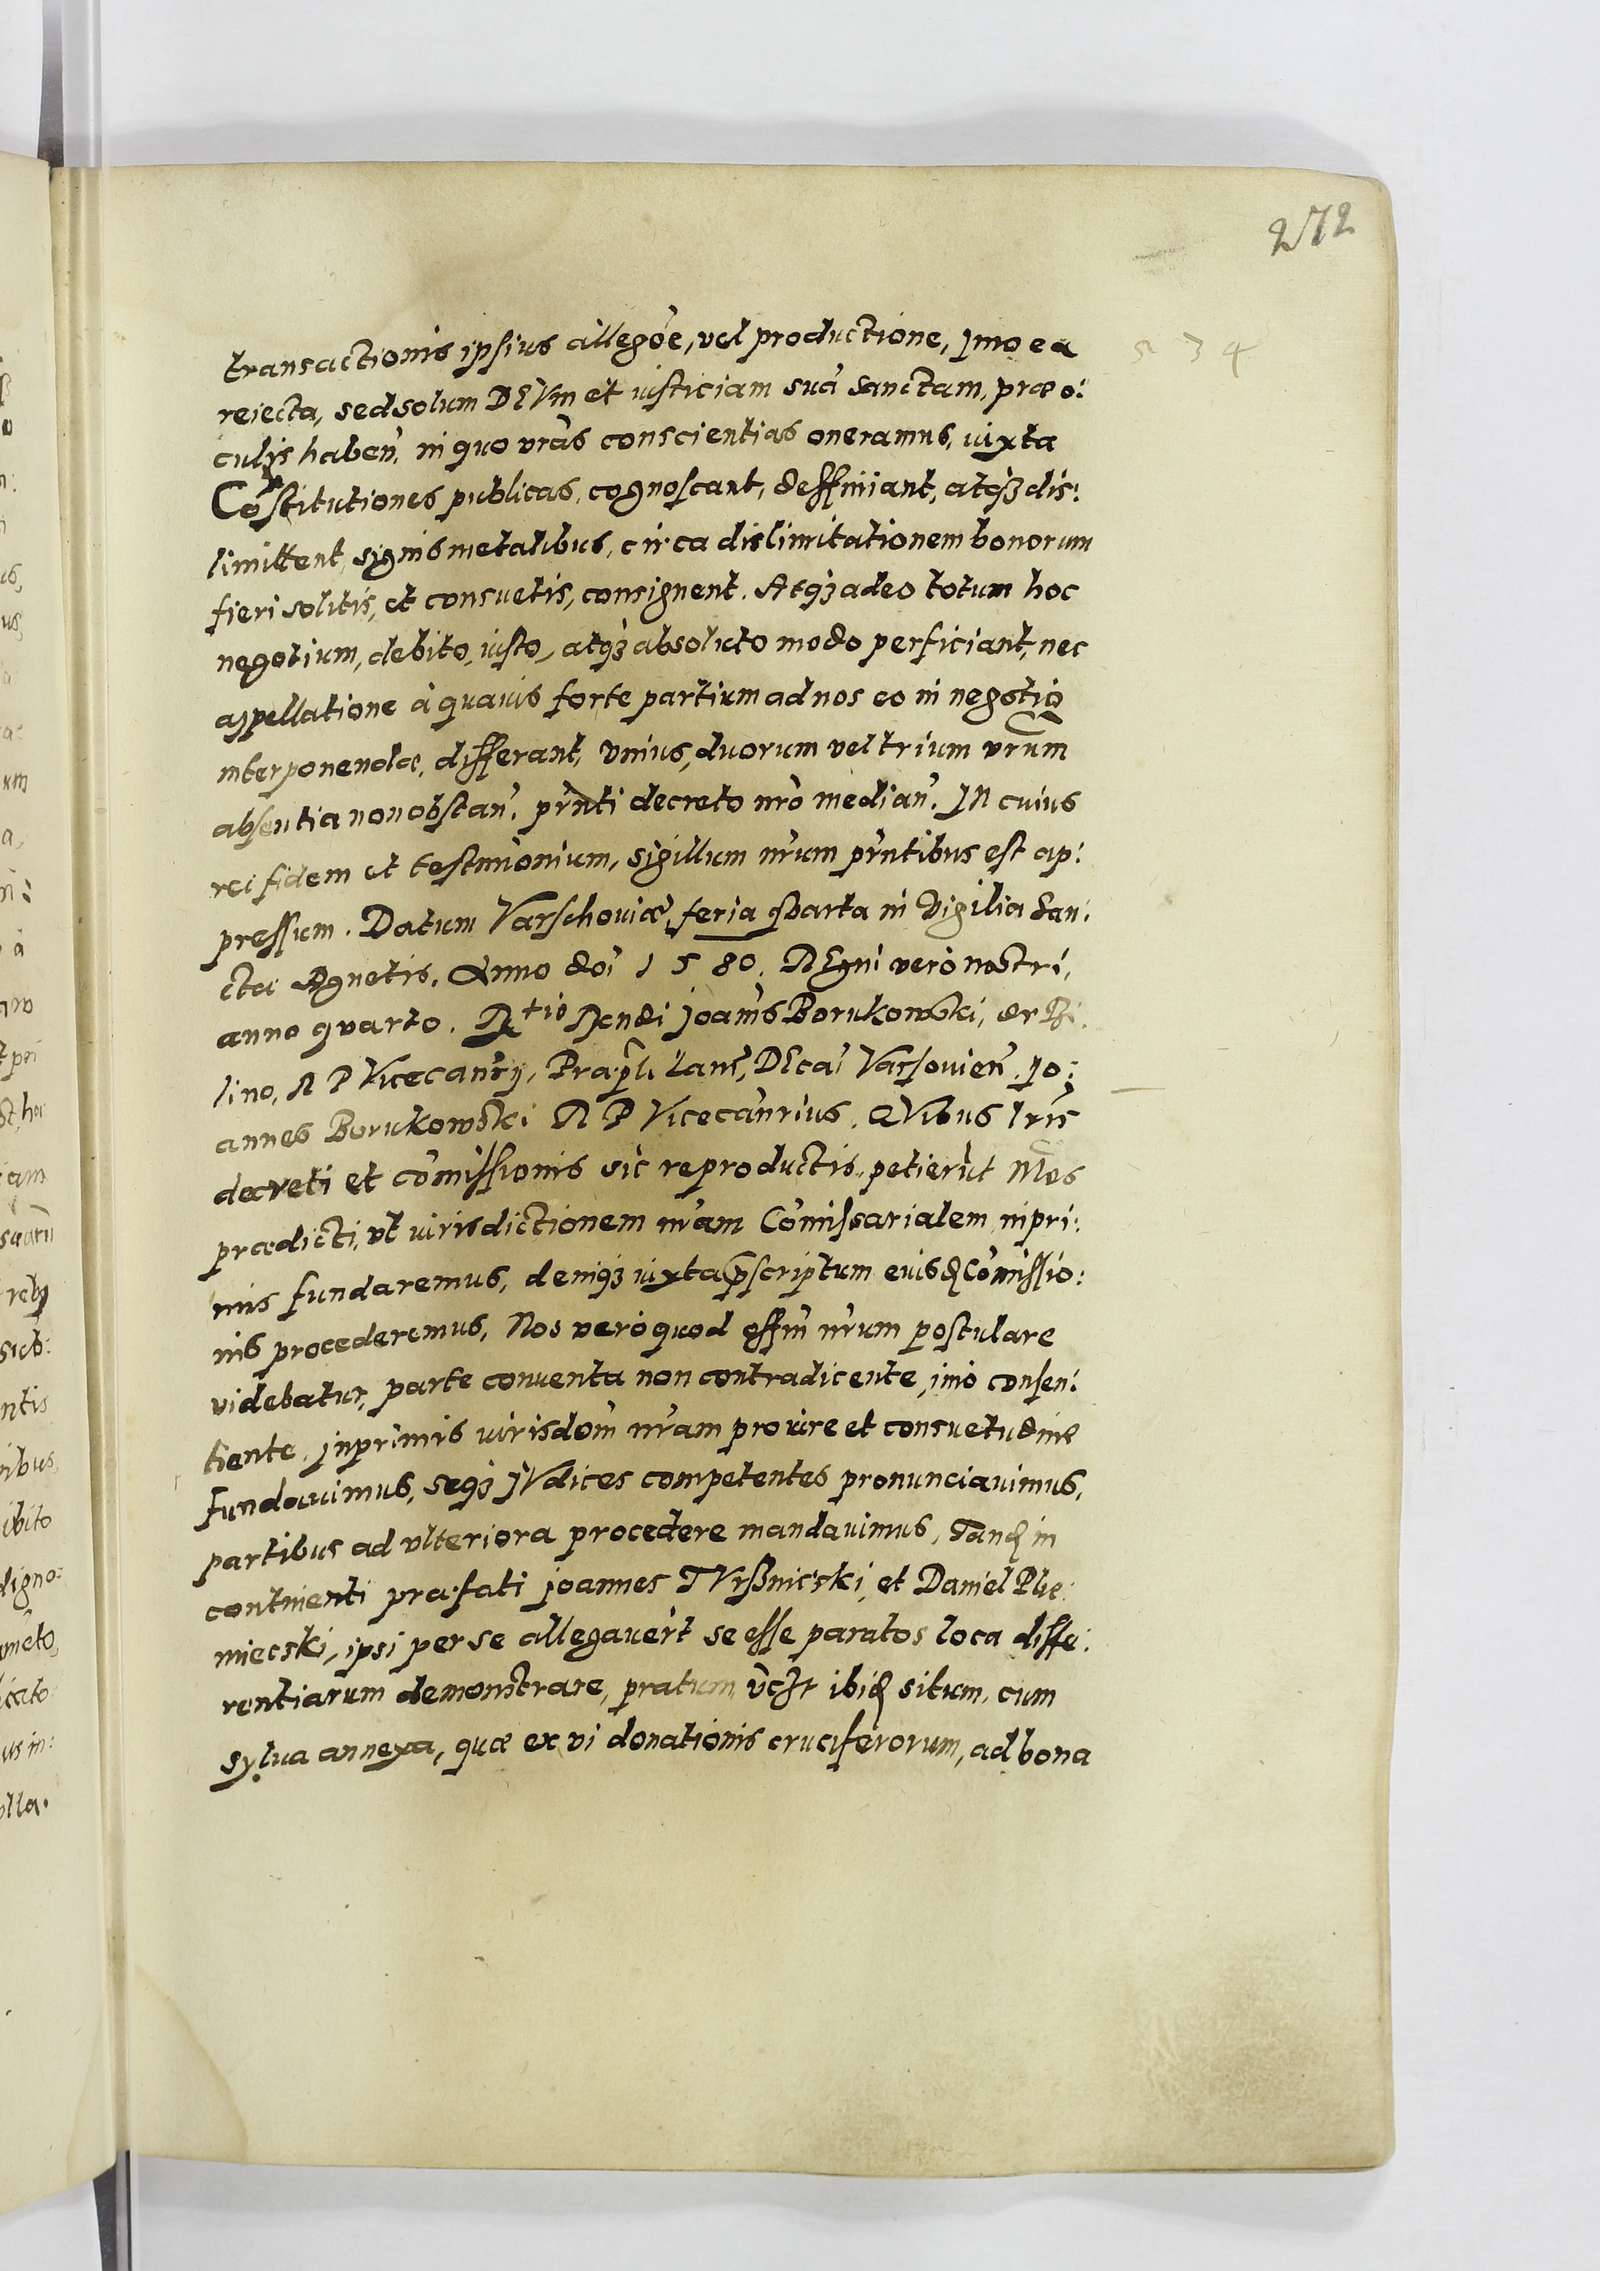 272
234
transactionis ipsius allegoe, vel productione, jmo ea
reiecta, sed solum DEVm et iusticiam suã sanctam, præ o:
culis haben, in quo vras conscientias oneramus, iuxta
Constitutiones publicas, cognoscant, deffiniant, atq3 dis:
limittent, signis metalibus, circa dislimitationem bonorum
fieri solitis, et consuetis, consignent. Atq3 adeo totum hoc
negotium, debito, iusto, atq3 absoluto modo perficiant, nec
appellatione à quauis forte partium ad nos eo in negotio
interponendæ, differant, vnius, duorum vel trium vrum
absentia non obstan. prnti decreto nro median. JN cuius
rei fidem et testimonium, sigillum nrum prntibus est ap:
pressum. Datum Varschouiæ, feria qvarta in Vigilia San:
ctæ Agnetis. Anno doi 1580. REgni vero nostri,
anno qvarto. Rtio Rendi Joanis Borukowski, de Bi:
lino, R P Vicecanrij, Præpti Lanc, DEcai Varsouien. Jo:
annes Borukowski R P Vicecanrius. QVibus lris
decreti et comissionis sic reproductis, petierut Mos
prædicti, vt iurisdictionem nram Comissarialem inpri:
mis fundaremus, deniq3 iuxta pscriptum euisd Comissio:
nis procederemus. Nos vero quod offm nrum postulare
videbatur, parte conuenta non contradicente, imo consen:
tiente, jnprimis iurisdom nram pro iure et consuetudine
fundauimus, seq3 jVdices competentes pronunciauimus,
partibus ad vlteriora procedere mandauimus, Tand in
continenti præfati Joannes TVrßnicski, et Daniel Plie:
miecski, ipsi per se allegauert se esse paratos loca diffe:
rentiarum demonstrare, pratum ibid situm, cum
sylua annexa, quæ ex vi donationis cruciferorum, ad bona